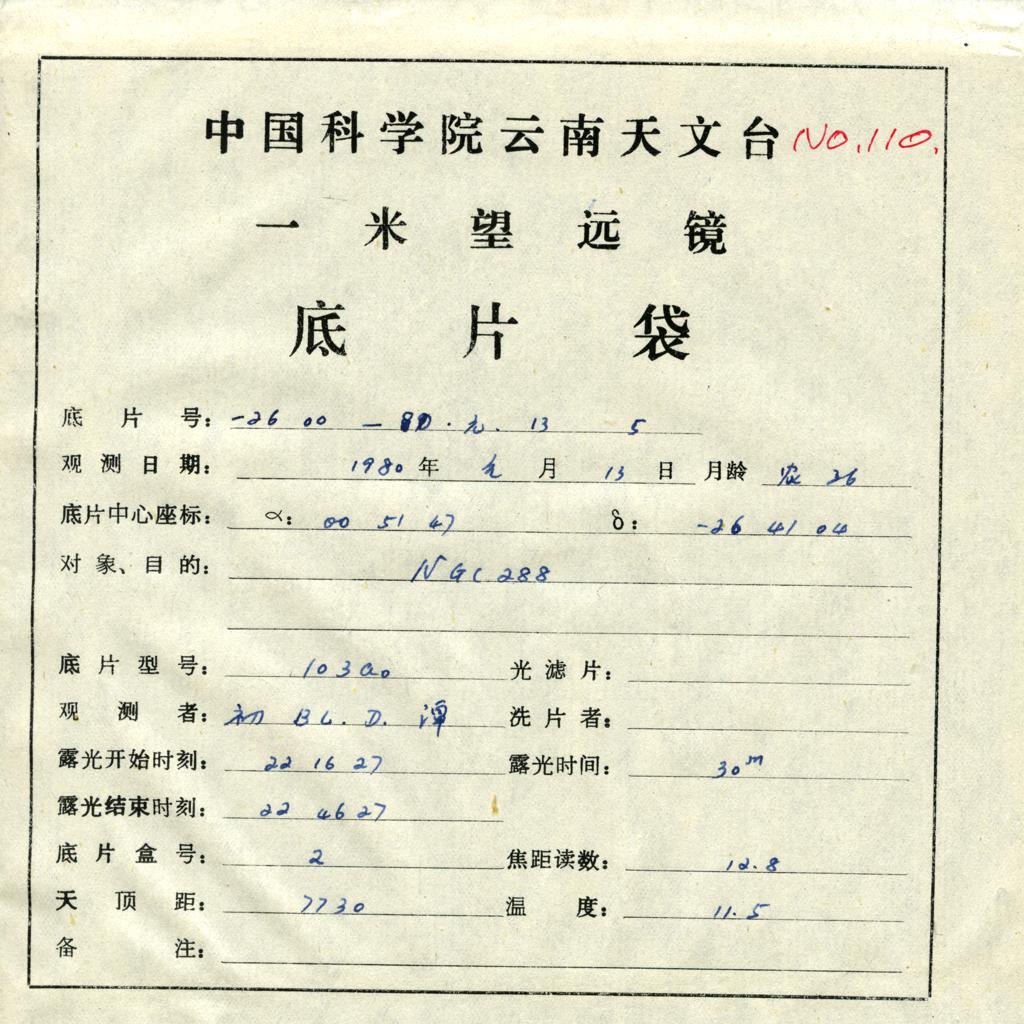 中国科学院云南天文台 NO.110.
一米望远镜
底片袋
底片号： -26 00 - 80 . 元 . 13 5
观测日期： 1980 年 元 月 13 日 月龄 农 26
底片中心座标： α： 00 51 47 δ： -26 41 04
对象、目的： NGC 288
底片型号： 103a0 光滤片：
观测者： B L. D. 谭 洗片者：
露光开始时刻： 22 16 27 露光时间： 30m
露光结束时刻： 22 46 27
底片盒号： 2 焦距读数： 12.8
天顶距： 7730 温度： 11.5
备注：